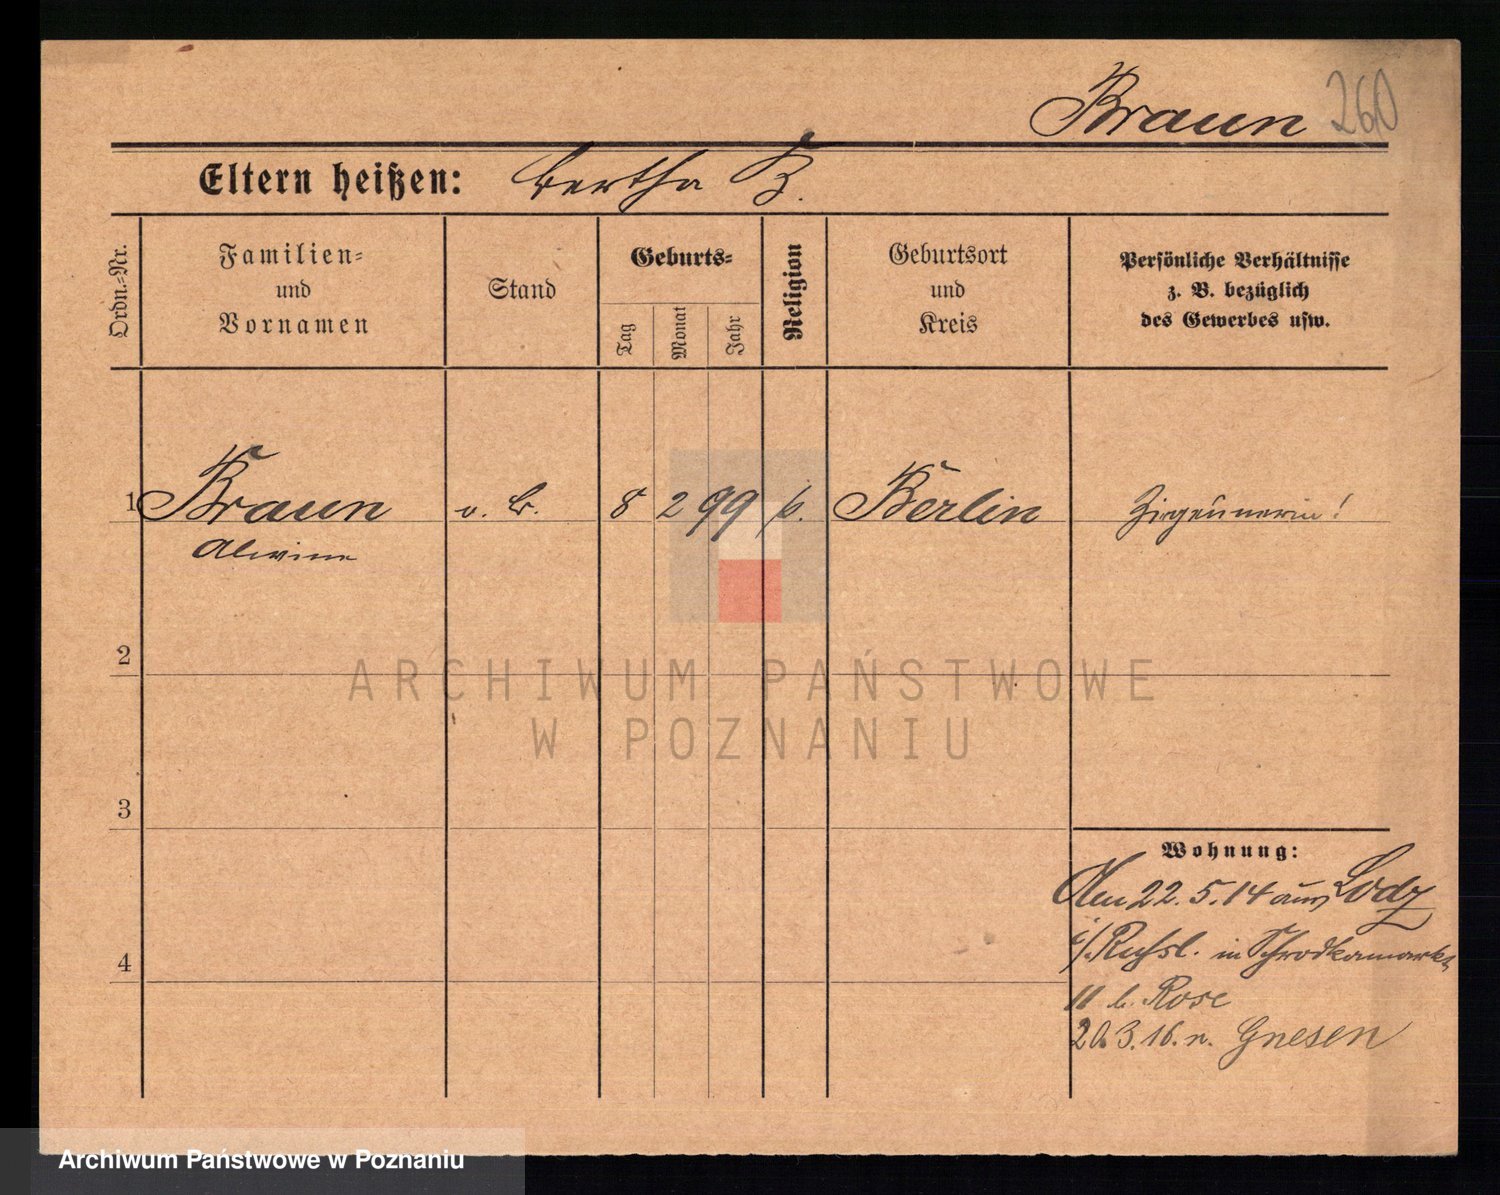 Braun 260
Eltern heißen: Bertha B.
Ordn.-Nr.
Familien-
und
Vornamen
Stand
Geburts-
Tag
Monat
Jahr
Religion
Geburtsort
und
Kreis
Persönliche Verhältnisse
z. B. bezüglich
des Gewerbes usw.
1 Braun o. B. 8 2 99 k. Berlin Zigeunerin!
Alwine
2
3
4
Wohnung:
Am 22.5.14 aus Lodz
i/Rußl. in Schrodkamarkt
11 b. Rose
20.3.16. n. Gnesen
ARCHIWUM PAŃSTWOWE
W POZNANIU
Archiwum Państwowe w Poznaniu